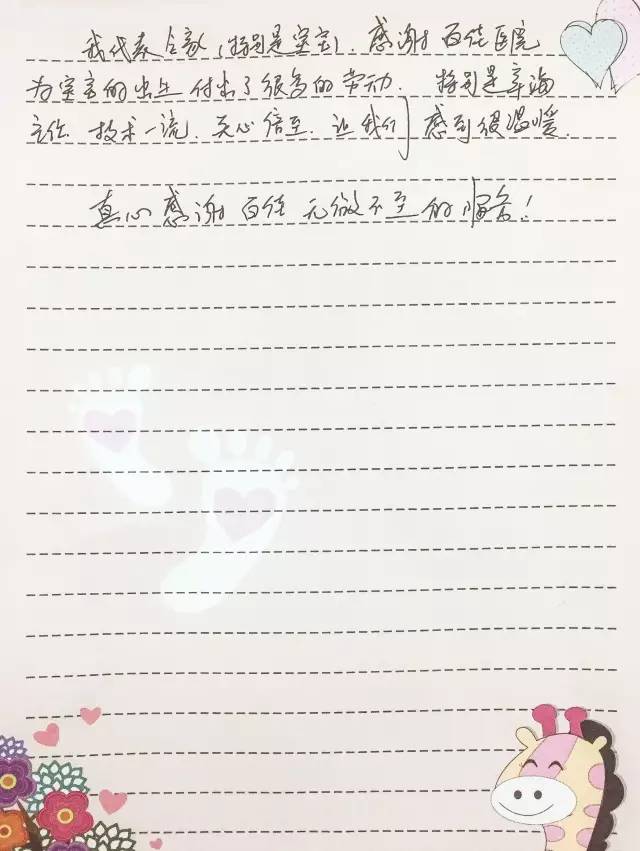 我代表全家(特别是宝宝),感谢百佳医院
为宝宝的出生付出了很多的劳动.特别是辛海
主任 技术一流.关心倍至.让我们感到很温暖.
真心感谢百佳无微不至的服务!